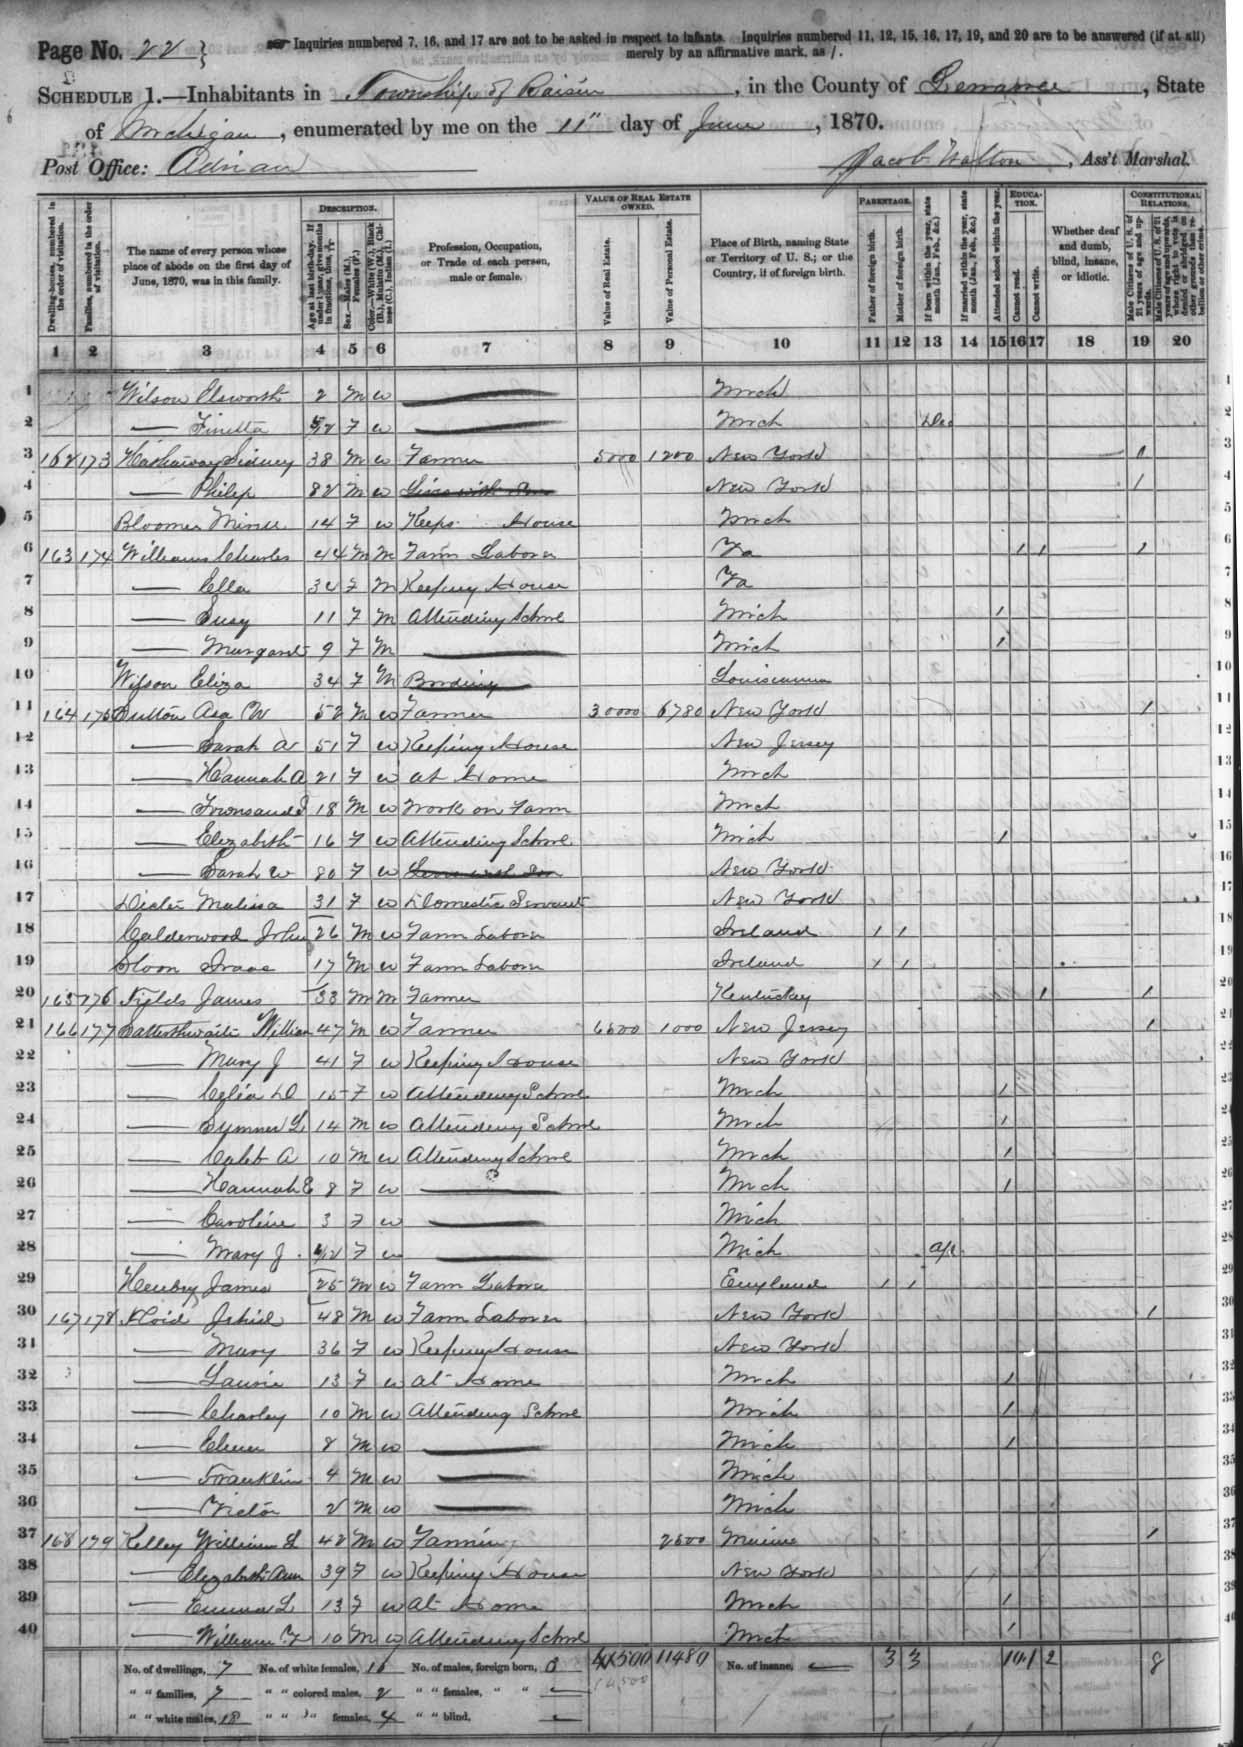 Page No. 22 } Inquiries numbered 7, 16, and 17 are not to be asked in respect to infants. Inquiries numbered 11, 12, 15, 16, 17, 19, and 20 are to be answered (if at all)
merely by an affirmative mark, as /.
SCHEDULE 1.—Inhabitants in Township of Raisin, in the County of Lenawee, State
of Michigan, enumerated by me on the 11" day of June, 1870.
Post Office: Adrian Jacob Walton, Ass't Marshal.
Dwelling-houses, numbered in the order of visitation.
Families, numbered in the order of visitation.
The name of every person whose place of abode on the first day of June, 1870, was in this family.
DESCRIPTION.
Age at last birth-day. If under 1 year, give months in fractions, thus, 3/12
Sex.—Males (M.), Females (F.)
Color.—White (W.), Black (B.), Mulatto (M.), Chinese (C.), Indian (I.)
Profession, Occupation, or Trade of each person, male or female.
VALUE OF REAL ESTATE OWNED.
Value of Real Estate.
Value of Personal Estate.
Place of Birth, naming State or Territory of U. S.; or the Country, if of foreign birth.
PARENTAGE.
Father of foreign birth.
Mother of foreign birth.
If born within the year, state month (Jan., Feb., &c.)
If married within the year, state month (Jan., Feb., &c.)
Attended school within the year.
EDUCATION.
Cannot read.
Cannot write.
Whether deaf and dumb, blind, insane, or idiotic.
CONSTITUTIONAL RELATIONS.
Male Citizens of U. S. of 21 years of age and upwards.
Male Citizens of U. S. of 21 years of age and upwards, whose right to vote is denied or abridged on other grounds than rebellion or other crime.
1 2 3 4 5 6 7 8 9 10 11 12 13 14 15 16 17 18 19 20
1 Wilson Elsworth 2 M W Mich
2 — Finetta F W Mich Dec
3 162 173 Hathaway Sidney 38 M W Farmer 5000 1200 New York 1
4 — Philip 82 M W Lives with Son New York 1
5 Bloomer Minnie 14 F W Keeps House Mich
6 163 174 Williams Charles 44 M M Farm Laborer Va 1 1 1
7 — Ella 34 F M Keeping House Va
8 — Susy 11 F M Attending School Mich 1
9 — Margaret 9 F M Mich 1
10 Wilson Eliza 34 F M Bording Louisianna
11 164 175 Button Asa W 52 M W Farmer 30000 6780 New York 1
12 — Sarah 51 F W Keeping House New Jersey
13 — Hannah A 21 F W at Home Mich
14 — Townsand 18 M W Work on Farm Mich
15 — Elizabeth 16 F W Attending School Mich 1
16 — Sarah W 80 F W Lives with Son New York
17 Malissa 31 F W Domestic Servant New York
18 Calderwood John 26 M W Farm Labor Ireland 1 1
19 Sloan Isaac 17 M W Farm Labor Ireland 1 1
20 165 176 Fields James 33 M M Farmer Kentucky 1 1
21 166 177 Satterthwaite William 47 M W Farmer 6500 1000 New Jersey 1
22 — Mary J 41 F W Keeping House New York
23 — Celia D 15 F W Attending School Mich 1
24 — L 14 M W Attending School Mich 1
25 — Caleb A 10 M W Attending School Mich 1
26 — Hannah E 8 F W Mich 1
27 — Caroline 3 F W Mich
28 — Mary J. F W Mich Apr.
29 James 25 M W Farm Labor England 1 1
30 167 178 48 M W Farm Laborer New York 1
31 — Mary 36 F W Keeping House New York
32 — 13 F W at Home Mich 1
33 — Charley 10 M W Attending School Mich 1
34 — Elmer 8 M W Mich 1
35 — Franklin 4 M W Mich
36 — Victor 2 M W Mich
37 168 179 Kelley William L 42 M W Farming 2500 Maine 1
38 — Elizabeth Ann 39 F W Keeping House New York
39 — Emma L 13 F W at Home Mich 1
40 — William F 10 M W Attending School Mich 1
No. of dwellings, 7 No. of white females, 16 No. of males, foreign born, 3 41500 11480 No. of insane, — 3 3 14 1 2 8
" " families, 7 " " colored males, 2 " " females, " " —
" " white males, 18 " " " females, 4 " " blind, —